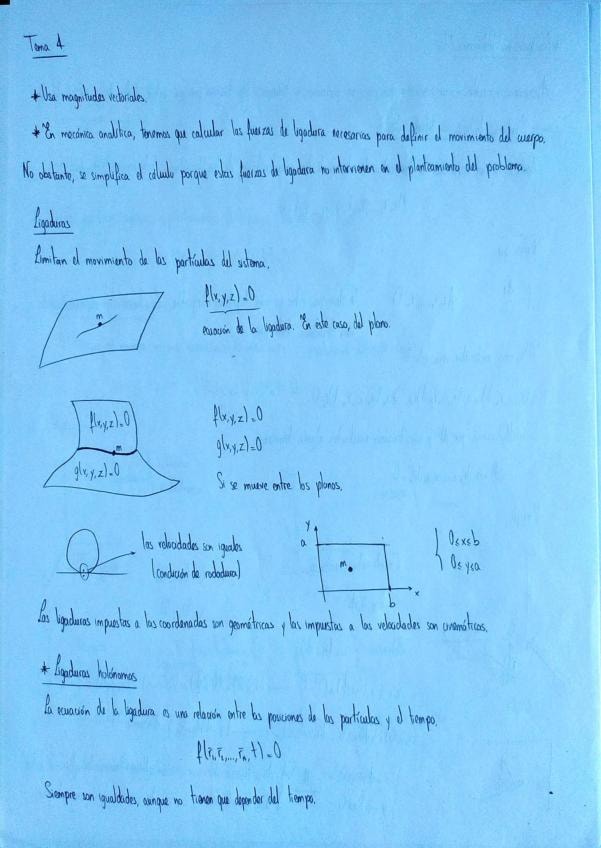 Tema 4
* Usa magnitudes vectoriales.
* En mecánica analítica, tenemos que calcular las fuerzas de ligadura necesarias para definir el movimiento del cuerpo.
No obstante, se simplifica el cálculo porque estas fuerzas de ligadura no intervienen en el planteamiento del problema.
Ligaduras
Limitan el movimiento de las partículas del sistema.
m
f(x,y,z)=0
ecuación de la ligadura. En este caso, del plano.
f(x,y,z)=0
m
g(x,y,z)=0
f(x,y,z)=0
g(x,y,z)=0
Si se mueve entre los planos.
las velocidades son iguales
(condición de rodadura)
y
a
m
b
x
0≤x≤b
0≤y≤a
Las ligaduras impuestas a las coordenadas son geométricas y las impuestas a las velocidades son cinemáticas.
* Ligaduras holónomas
La ecuación de la ligadura es una relación entre las posiciones de las partículas y el tiempo.
f(r̄₁,r̄₂,...,r̄ₙ,t)=0
Siempre son igualdades, aunque no tienen que depender del tiempo.